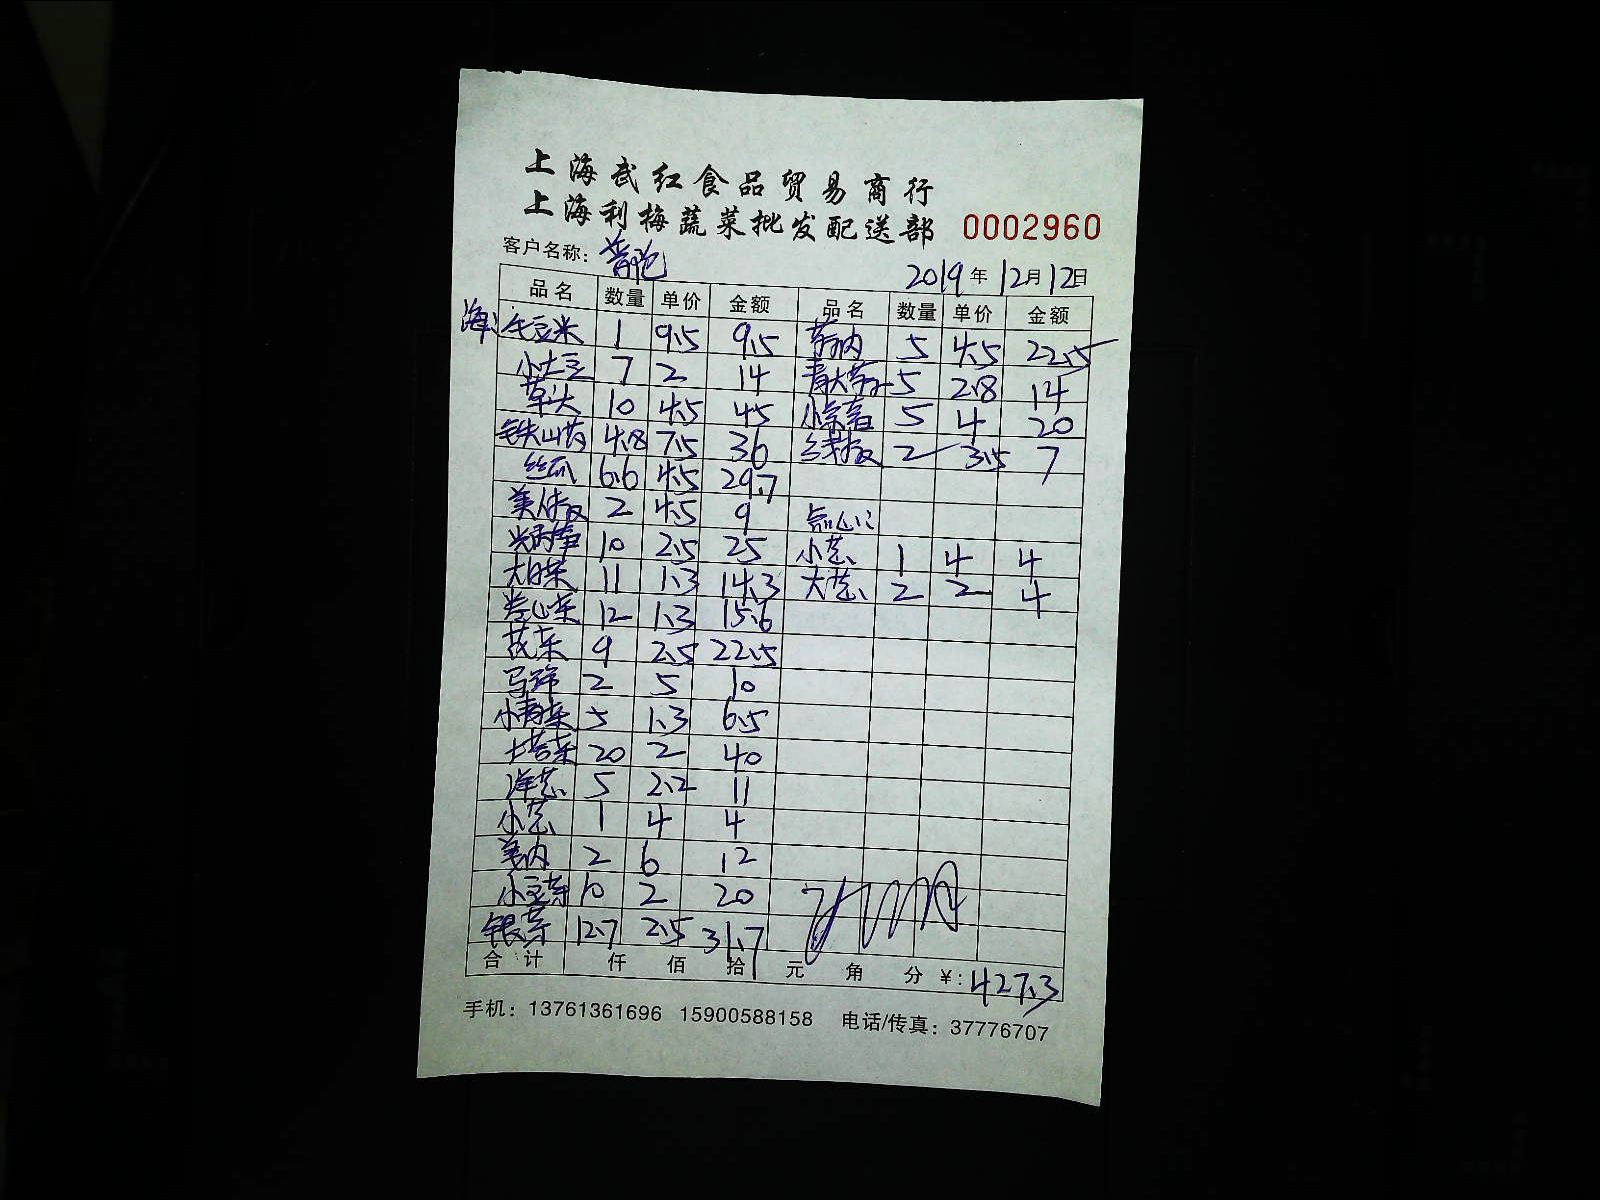 上海武红食品贸易商行
上海利梅蔬菜批发配送部 0002960
客户名称:
2019年12月12日
品名 数量 单价 金额 品名 数量 单价 金额
毛豆米 1 9.5 9.5 茭内 5 4.5 22.5
小土豆 7 2 14 5 2.8 14
草头 10 4.5 45 5 4 20
铁山药 4.8 7.5 36 线椒 2 3.5 7
丝瓜 6.6 4.5 29.7
美人椒 2 4.5 9 点心:
10 2.5 25 小葱 1 4 4
大白菜 11 1.3 14.3 大葱 2 2 4
卷心菜 12 1.3 15.6
花菜 9 2.5 22.5
马蹄 2 5 10
小青菜 5 1.3 6.5
塔菜 20 2 40
洋葱 5 2.2 11
小葱 1 4 4
姜内 2 6 12
10 2 20
银芽 12.7 2.5 31.7
合计 仟 佰 拾 元 角 分 ¥:427.3
手机:13761361696 15900588158 电话/传真:37776707